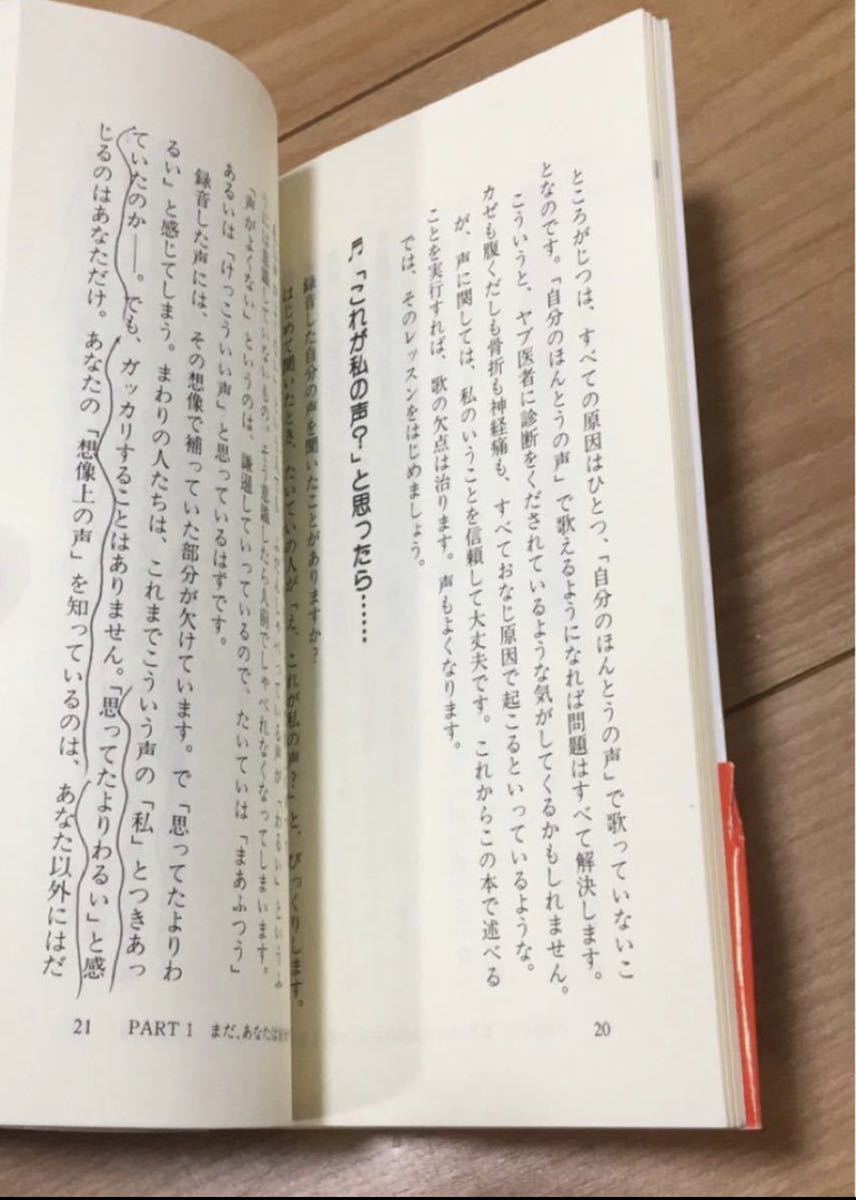 ところがじつは、すべての原因はひとつ、「自分のほんとうの声」で歌っていないこ
となのです。「自分のほんとうの声」で歌えるようになれば問題はすべて解決します。
こういうと、ヤブ医者に診断をくだされているような気がしてくるかもしれません。
カゼも腹くだしも骨折も神経痛も、すべておなじ原因で起こるといっているような。
が、声に関しては、私のいうことを信頼して大丈夫です。これからこの本で述べる
ことを実行すれば、歌の欠点は治ります。声もよくなります。
では、そのレッスンをはじめましょう。
♬「これが私の声?」と思ったら……
録音した自分の声を聞いたことがありますか?
はじめて聞いたとき、たいていの人が「え、これが私の声?」と、びっくりします。
20
には意識していないもの。そう意識したら人前でしゃべれなくなってしまいます。
「声がよくない」というのは、謙遜していっているので、たいていは「まあふつう」
あるいは「けっこういい声」と思っているはずです。
録音した声には、その想像で補っていた部分が欠けています。で「思ってたよりわ
るい」と感じてしまう。まわりの人たちは、これまでこういう声の「私」とつきあっ
ていたのか――。でも、ガッカリすることはありません。「思ってたよりわるい」と感
じるのはあなただけ。あなたの「想像上の声」を知っているのは、あなた以外にはだ
21 PART 1 まだ、あなたは